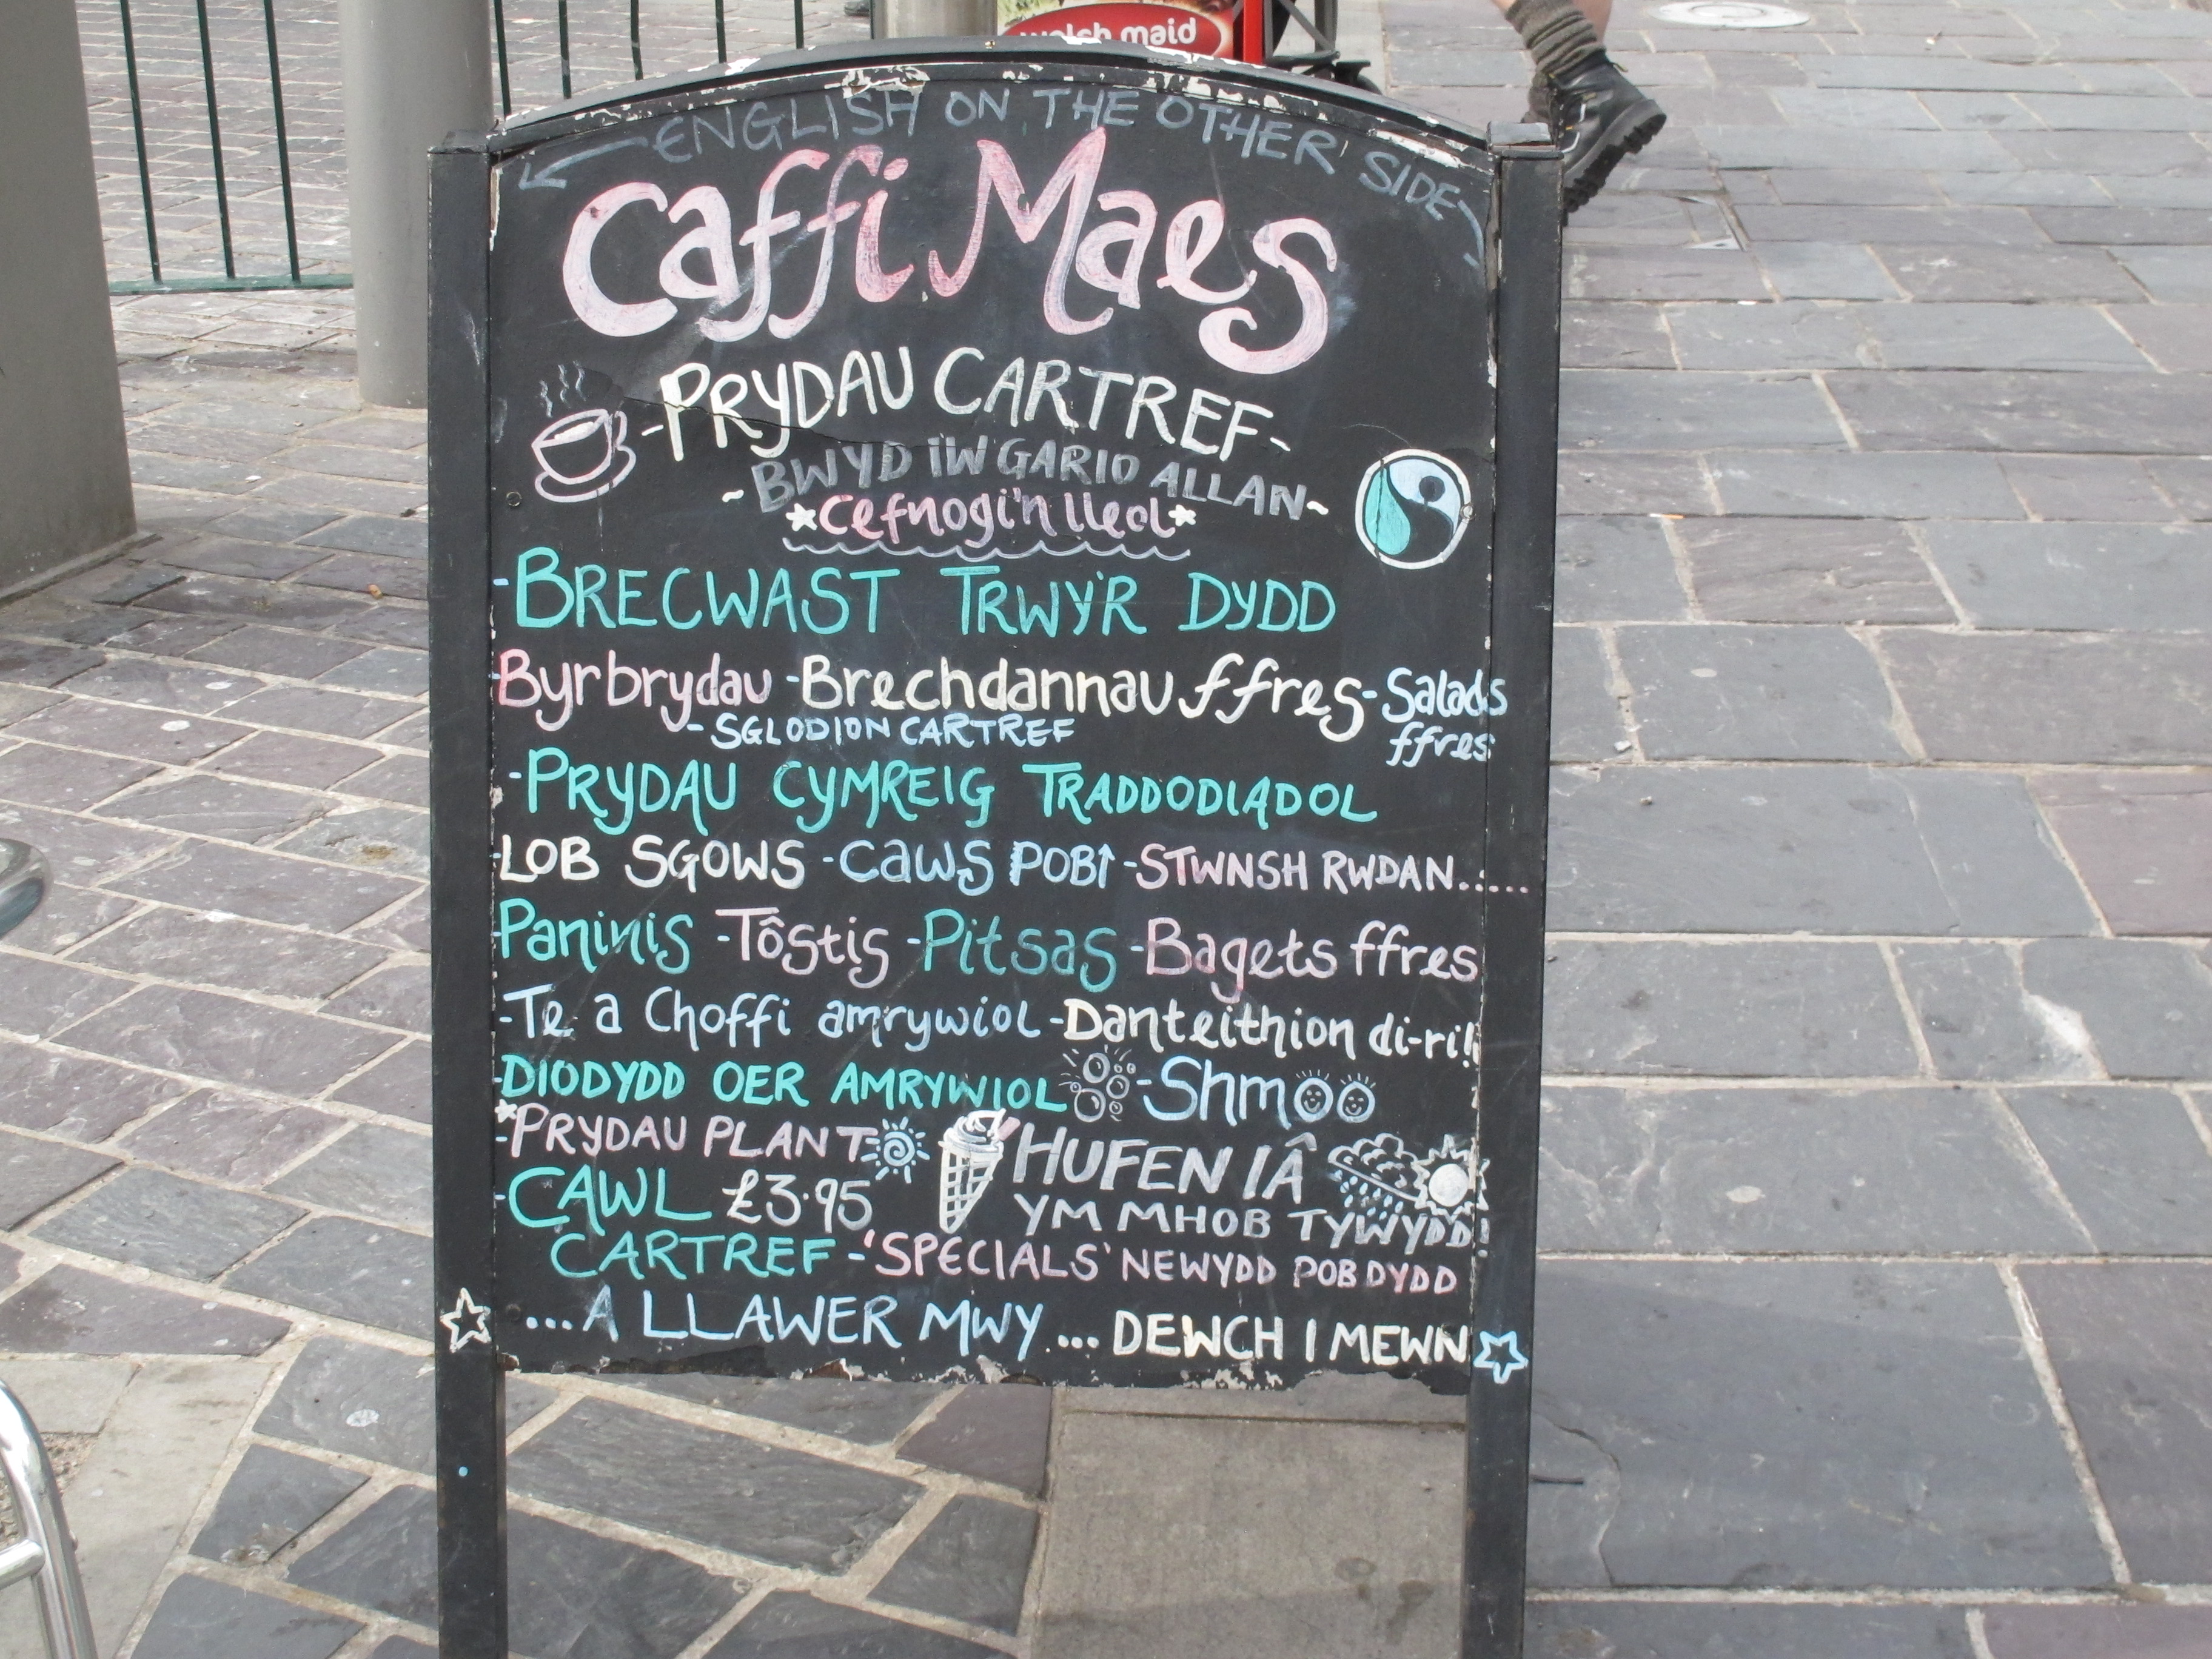 welch maid
ENGLISH ON THE OTHER SIDE
Caffi Maes
-PRYDAU CARTREF-
-BWYD I'W GARIO ALLAN-
*Cefnogi'n lleol*
-BRECWAST TRWY'R DYDD
-Byrbrydau -Brechdannau ffres- Salads
-SGLODION CARTREF ffres
-PRYDAU CYMREIG TRADDODIADOL
-LOB SGOWS -CAWS POBI -STWNSH RWDAN.....
-Paninis -Tôstis -Pitsas -Bagets ffres
-Te a Choffi amrywiol -Danteithion di-ri!!
-DIODYDD OER AMRYWIOL -Shmoo
*-PRYDAU PLANT HUFEN IÂ
-CAWL £3.95 YM MHOB TYWYDD!
CARTREF -'SPECIALS' NEWYDD POB DYDD
...A LLAWER MWY... DEWCH I MEWN